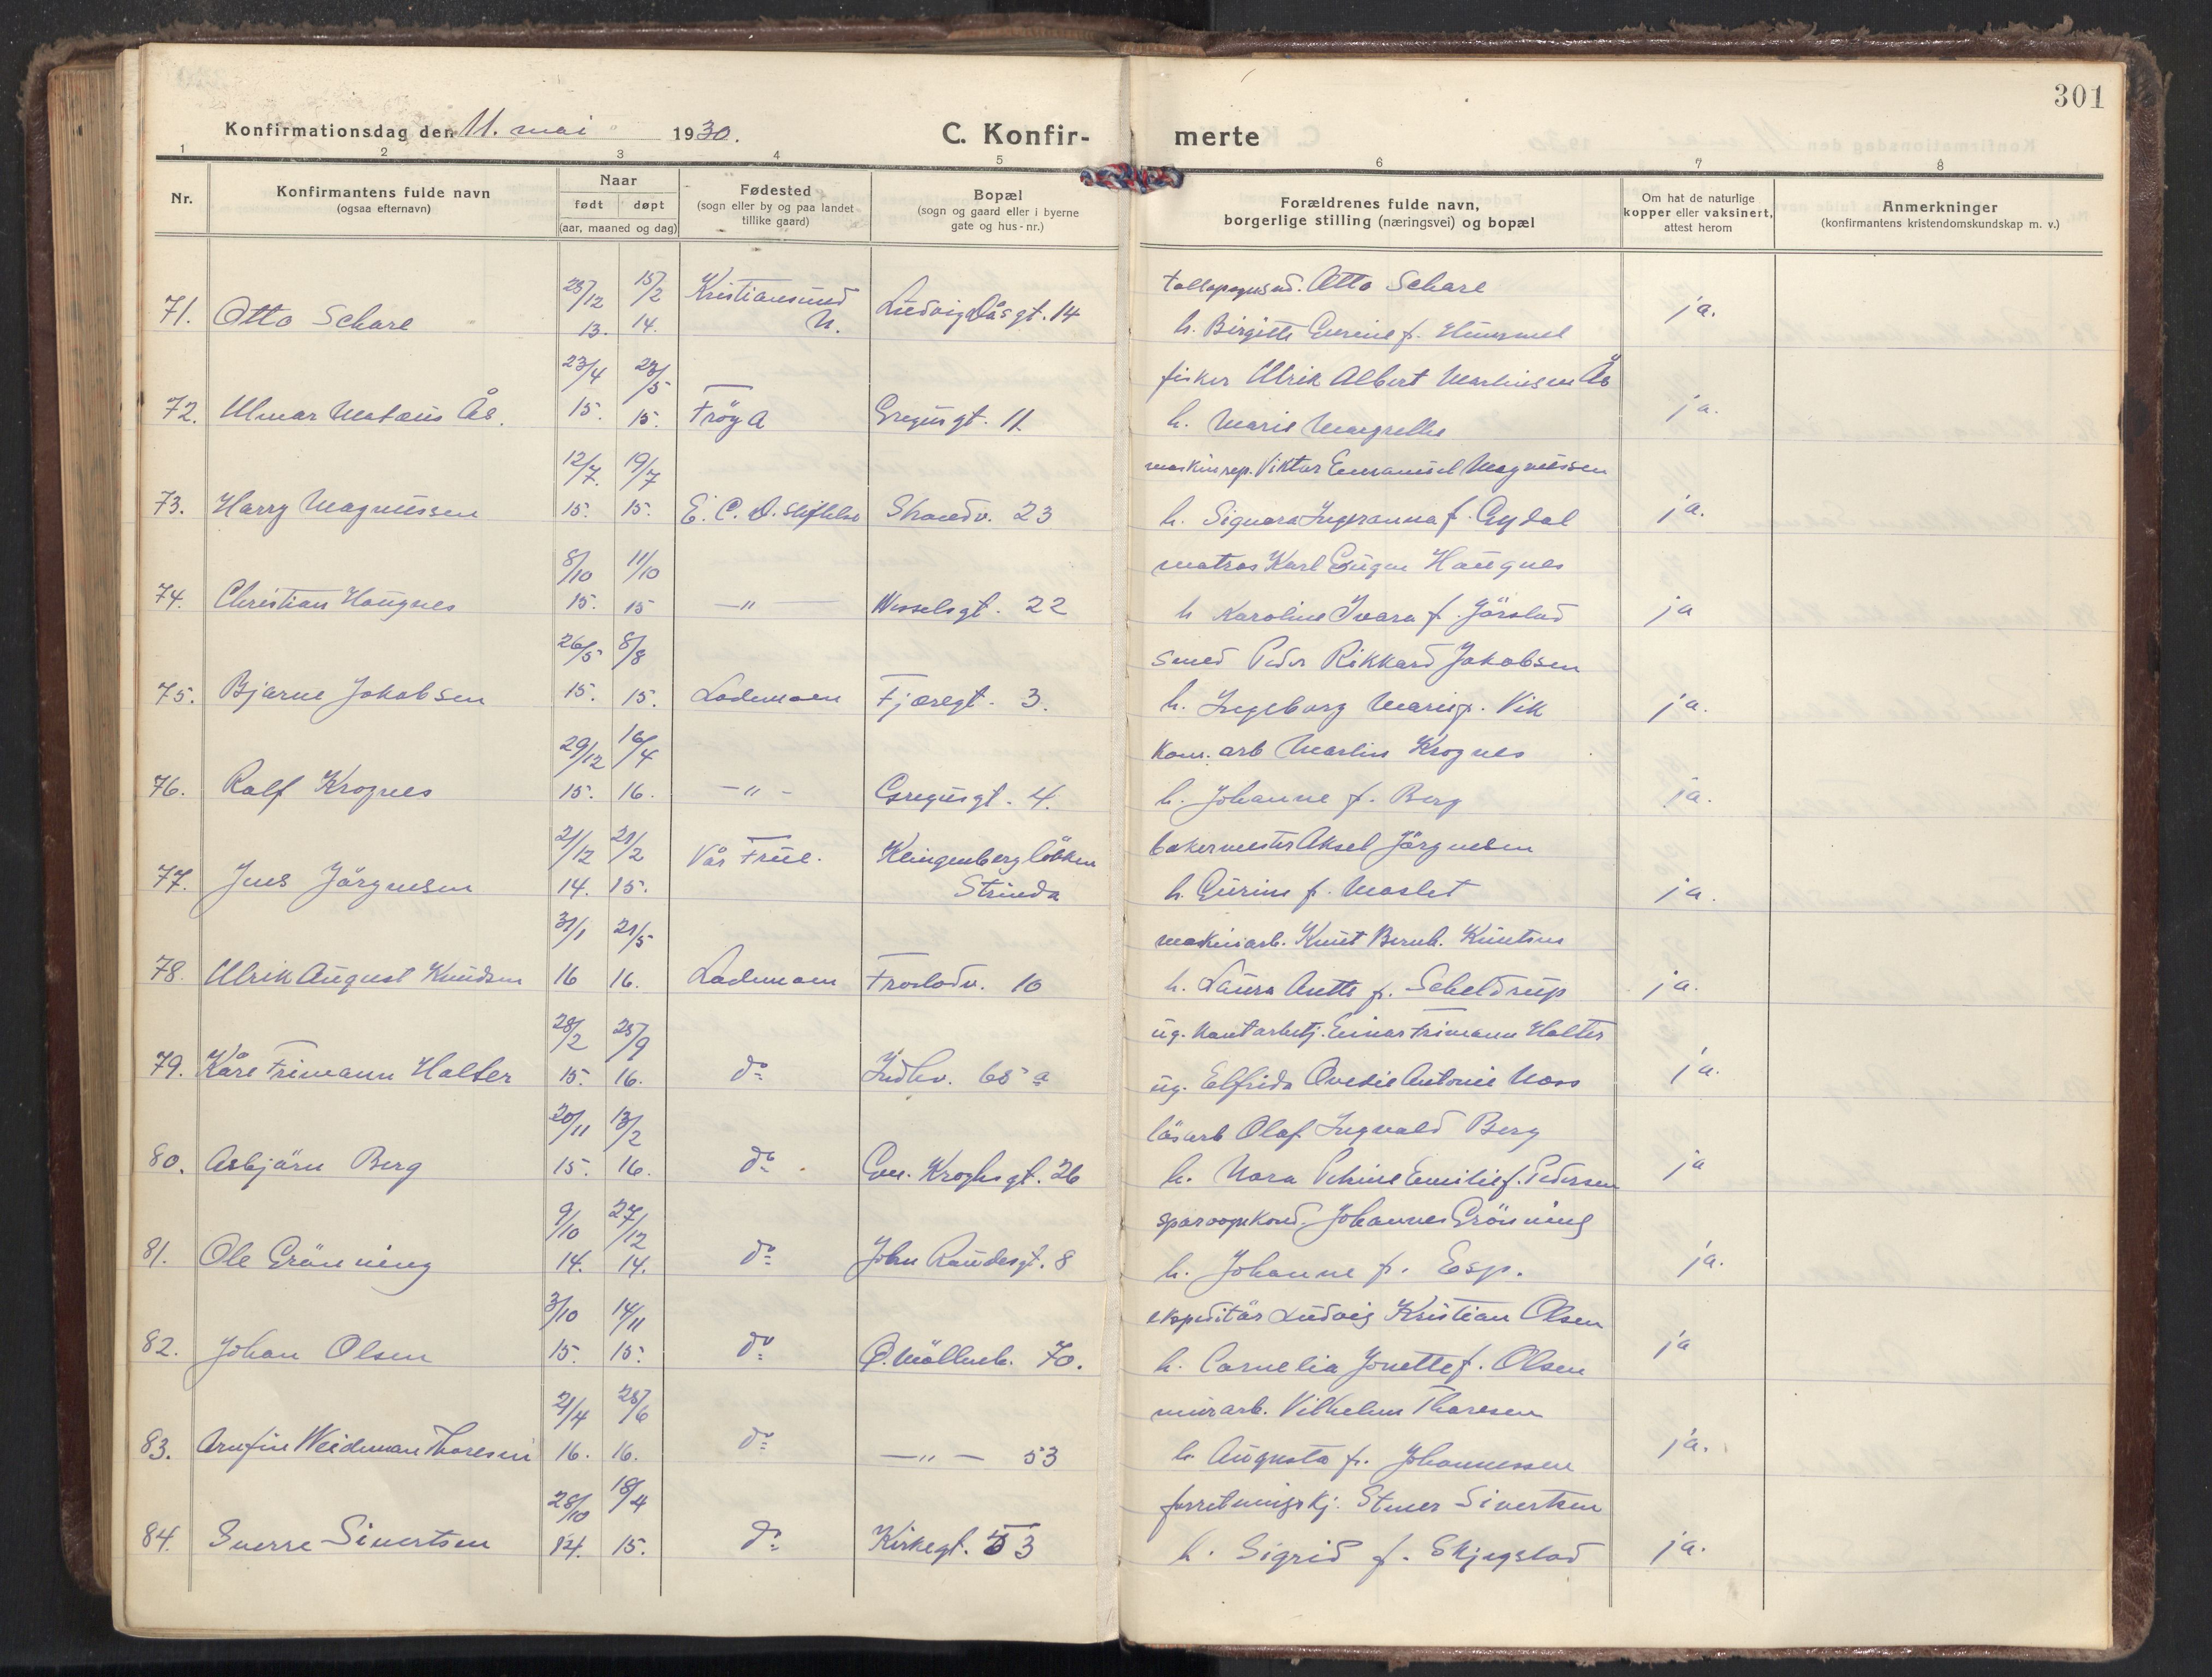 301
Konfirmationsdag den 11. mai 1930.
C. Konfir-
merte
1 2 3 4 5 6 7 8
Nr.
Konfirmantens fulde navn
(ogsaa efternavn)
Naar
født døpt
(aar, maaned og dag)
Fødested
(sogn eller by og paa landet
tillike gaard)
Bopæl
(sogn og gaard eller i byerne
gate og hus-nr.)
Forældrenes fulde navn,
borgerlige stilling (næringsvei) og bopæl
Om hat de naturlige
kopper eller vaksinert,
attest herom
Anmerkninger
(konfirmantens kristendomskundskap m. v.)
25/12 15/2 Kristiansund Otto Schare
71. Otto Schare 13. 14. N. Ludvig Dåsgt. 14 h. Birgitte f. ja.
23/4 23/5 fisker Ulrik Albert Martinsen Ås
72. Mataus Ås. 15. 15. Frøya Gregusgt. 11. h. Marie Margrethe ja.
12/7. 19/7 maskinrep. Viktor Emanuel Magnussen
73. Harry Magnussen 15. 15. E. C. D. stiftelse Strandv. 23 h. Signora f. Gydal ja.
8/10 11/10 matros Karl Eugen Haugnes
74. Christian Haugnes 15. 15 —"— Wesselsgt. 22 h Karoline Ivara f. Jörstad ja
26/5 8/8 smed Peder Rikkard Jakobsen
75. Bjarne Jakobsen 15. 15. Lademoen Fjæregt. 3. h. Ingeborg Marie f. Vik ja.
29/12 16/4 Kom. arb Martin Krognes
76. Ralf Krognes 15. 16. —"- Gregusgt. 4. h. Johanne f. Berg ja.
21/12 21/2 Vår Frue. Klingenberg løkken bakermester Aksel Jörgensen
77. Jens Jörgensen 14. 15. Strinda h. Gurine f. Moslet ja.
31/1 21/5 maskinarb. Knut Bernh. Knutsen
78. Ulrik August Knudsen 16 16. Lademoen Frostadv. 10 h. Laura Anette f. Scheldrup ja.
28/2 25/9 ug. Einar Frimann Halter
79. Kåre Frimann Halter 15. 16. do Indhv. 65 a ug. Elfrida Ovedie Antonie Moss ja.
20/11 13/2 løsarb Olaf Ingvald Berg
80. Asbjörn Berg 15. 16. do Gen. Kroghsgt. 26 h. Nora Petrine Emilie f. Pedersen ja
9/10 27/12 sporvognkond. Johannes Grönning
81. Ole Grönning 14. 14. do John Raudesgt. 8 h. Johanne f. Esp. ja.
3/10 14/11 ekspeditör Ludvig Kristian Olsen
82. Johan Olsen 15. 15. do Ø. Møllenb. 70. h. Cornelia Jonette f. Olsen ja
21/4 25/6 murarb. Vilhelm Thoresen
83. Arnfin Weidemann Thoresen 16. 16. do —"— 53 h. Augusta f. Johannessen ja.
28/10 18/4 forretningskj. Stener Sivertsen
84. Sverre Sivertsen 14. 15. do Kirkegt. 53 h. Sigrid f. Skjegstad ja.